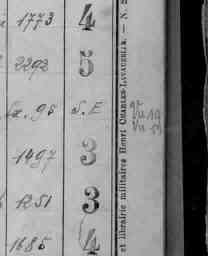 1773 4
2292 5
Ex. 95 S.E
1497 3
1251 3
1685 4
et librairie militaires Henri CHARLES-LAVAUZELLE. — N.